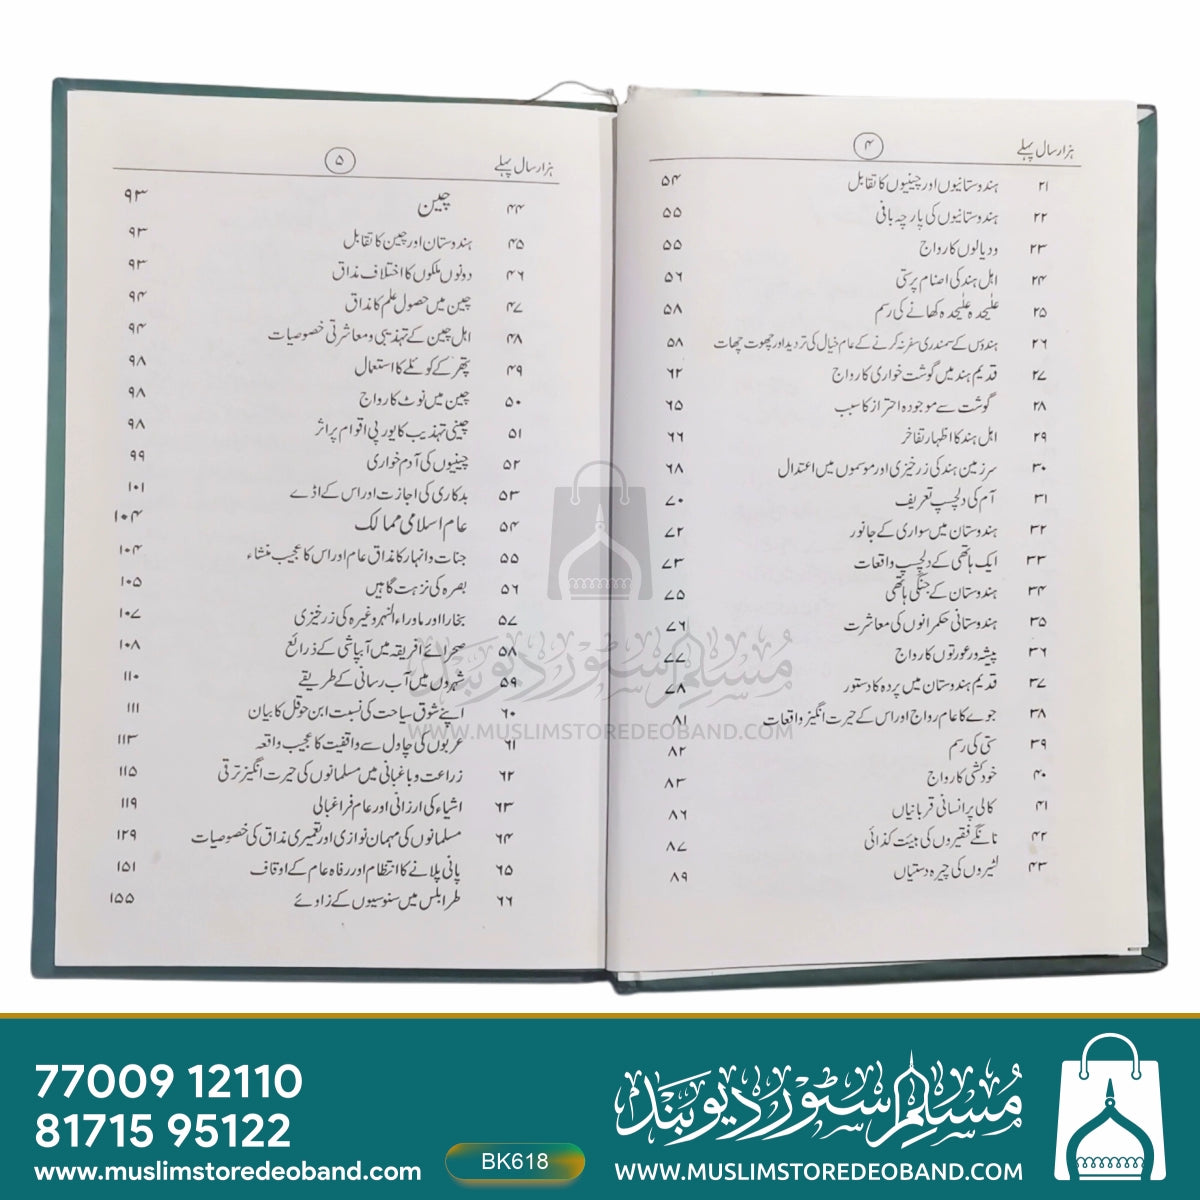 ہزار سال پہلے ۴
۲۱ ہندوستانیوں اور چینیوں کا تقابل ۵۴
۲۲ ہندوستانیوں کی پارچہ بافی ۵۵
۲۳ ودیالوں کا رواج ۵۵
۲۴ اہل ہند کی اصنام پرستی ۵۶
۲۵ علٰیحدہ علٰیحدہ کھانے کی رسم ۵۸
۲۶ ہندؤں کے سمندری سفر نہ کرنے کے عام خیال کی تردید اور چھوت چھات ۵۸
۲۷ قدیم ہند میں گوشت خواری کا رواج ۶۲
۲۸ گوشت سے موجودہ احتراز کا سبب ۶۵
۲۹ اہل ہند کا اظہار تفاخر ۶۶
۳۰ سرزمین ہند کی زرخیزی اور موسموں میں اعتدال ۶۸
۳۱ آم کی دلچسپ تعریف ۷۰
۳۲ ہندوستان میں سواری کے جانور ۷۲
۳۳ ایک ہاتھی کے دلچسپ واقعات ۷۳
۳۴ ہندوستان کے جنگی ہاتھی ۷۵
۳۵ ہندوستانی حکمرانوں کی معاشرت ۷۶
۳۶ پیشہ ور عورتوں کا رواج ۷۷
۳۷ قدیم ہندوستان میں پردہ کا دستور ۷۸
۳۸ جوے کا عام رواج اور اس کے حیرت انگیز واقعات ۸۱
۳۹ ستی کی رسم ۸۲
۴۰ خودکشی کا رواج ۸۳
۴۱ کالی پر انسانی قربانیاں ۸۶
۴۲ نانگے فقیروں کی ہیئت کذائی ۸۷
۴۳ لٹیروں کی چیرہ دستیاں ۸۹
ہزار سال پہلے ۵
۴۴ چین ۹۳
۴۵ ہندوستان اور چین کا تقابل ۹۳
۴۶ دونوں ملکوں کا اختلاف مذاق ۹۳
۴۷ چین میں حصول علم کا مذاق ۹۴
۴۸ اہل چین کے تہذیبی و معاشرتی خصوصیات ۹۴
۴۹ پتھر کے کوئلے کا استعمال ۹۸
۵۰ چین میں نوٹ کا رواج ۹۸
۵۱ چینی تہذیب کا یورپی اقوام پر اثر ۹۸
۵۲ چینیوں کی آدم خواری ۹۹
۵۳ بدکاری کی اجازت اور اس کے اڈے ۱۰۱
۵۴ عام اسلامی ممالک ۱۰۴
۵۵ جنات و انہار کا مذاق عام اور اس کا عجیب منشاء ۱۰۴
۵۶ بصرہ کی نزہت گاہیں ۱۰۵
۵۷ بخارا اور ماوراء النہر وغیرہ کی زرخیزی ۱۰۷
۵۸ صحرائے افریقہ میں آبپاشی کے ذرائع ۱۰۸
۵۹ شہروں میں آب رسانی کے طریقے ۱۱۰
۶۰ اپنے شوق سیاحت کی نسبت ابن حوقل کا بیان ۱۱۱
۶۱ عربوں کی چاول سے واقفیت کا عجیب واقعہ ۱۱۳
۶۲ زراعت و باغبانی میں مسلمانوں کی حیرت انگیز ترقی ۱۱۵
۶۳ اشیاء کی ارزانی اور عام فراغبالی ۱۱۹
۶۴ مسلمانوں کی مہمان نوازی اور تعمیری مذاق کی خصوصیات ۱۲۹
۶۵ پانی پلانے کا انتظام اور رفاہ عام کے اوقاف ۱۵۱
۶۶ طرابلس میں سنوسیوں کے زاوئے ۱۵۵
مسلم سٹور دیوبند
WWW.MUSLIMSTOREDEOBAND.COM
77009 12110
81715 95122
www.muslimstoredeoband.com
BK618
مسلم سٹور دیوبند
WWW.MUSLIMSTOREDEOBAND.COM